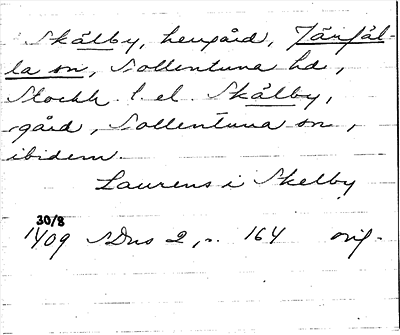 Skålby, herrgård, Järfäl-
la sn, Sollentuna hd,
Stockh. l. el. Skälby,
-gård, Sollentuna sn,
ibidem.
Laurens i Skelby
30/8
1409 SDns 2, s. 164 orig.